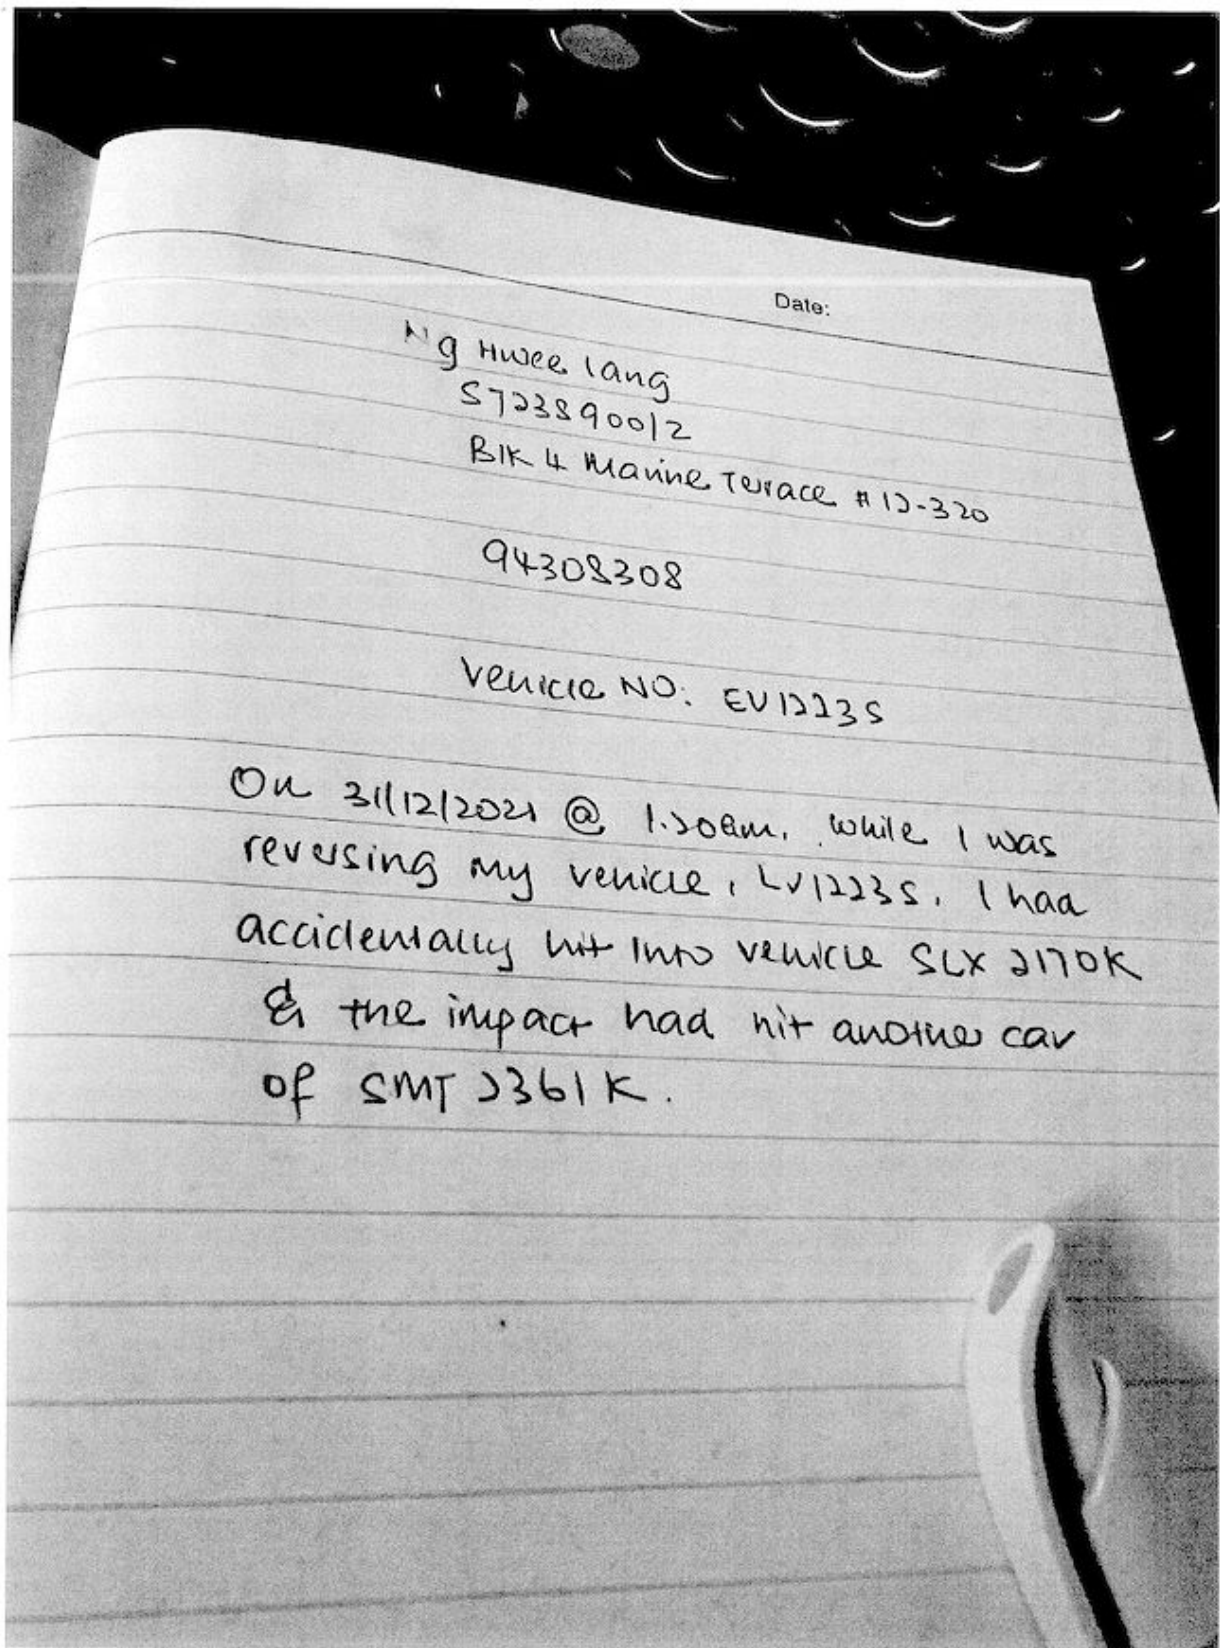 Date:
Ng Hwee lang
S7238900/2
Blk 4 Marine Terrace #12-320
94308308
Vehicle NO: EV1223S
On 31/12/2021 @ 1.20am, while I was
reversing my vehicle, EV1223S, I had
accidentally hit into vehicle SLX 2170K
& the impact had hit another car
of SMT 2361K.